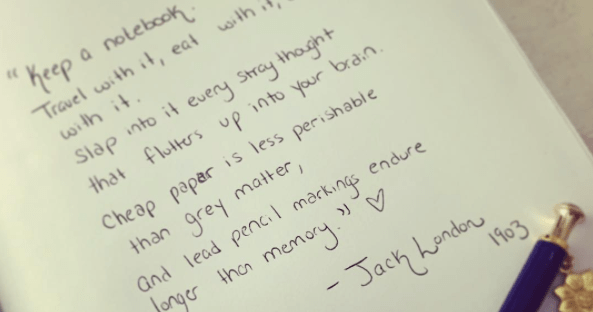 "Keep a notebook.
Travel with it, eat with it,
with it.
Slap into it every stray thought
that flutters up into your brain.
Cheap paper is less perishable
than grey matter,
and lead pencil markings endure
longer than memory." ♡
- Jack London
1903